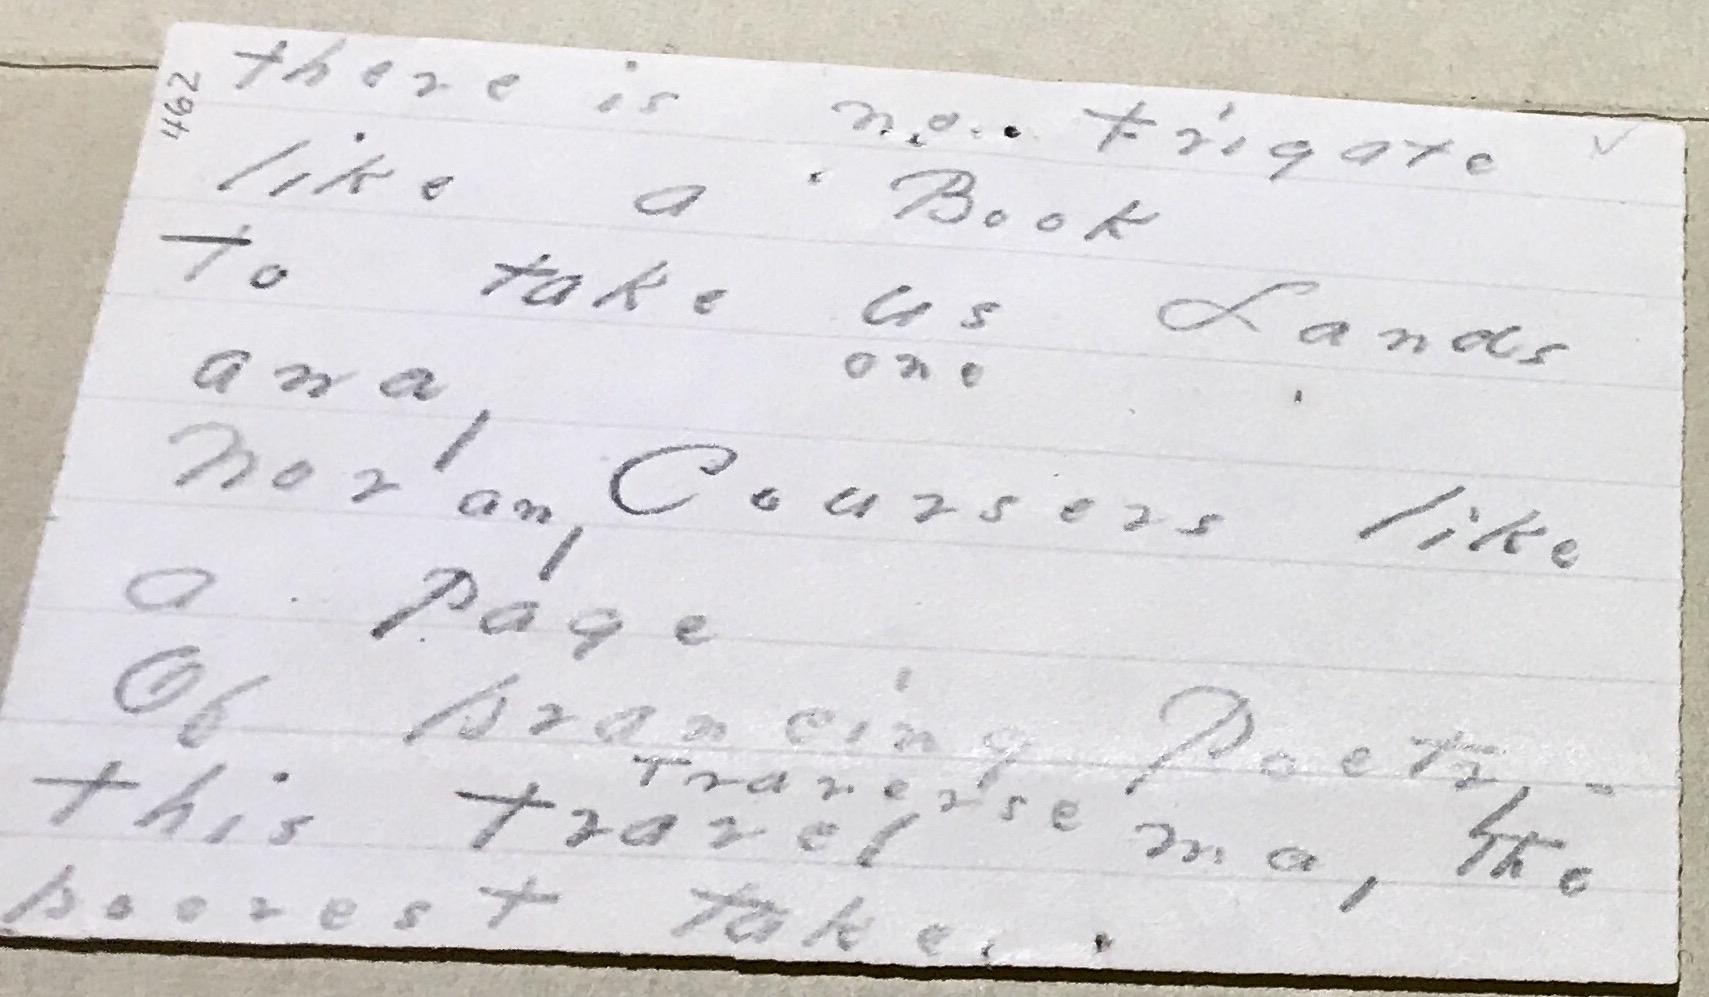 462
there is no frigate
like a Book
To take us Lands
away
one
Nor any Coursers like
a Page
Of prancing Poetry -
Traverse
this travel may the
poorest take.